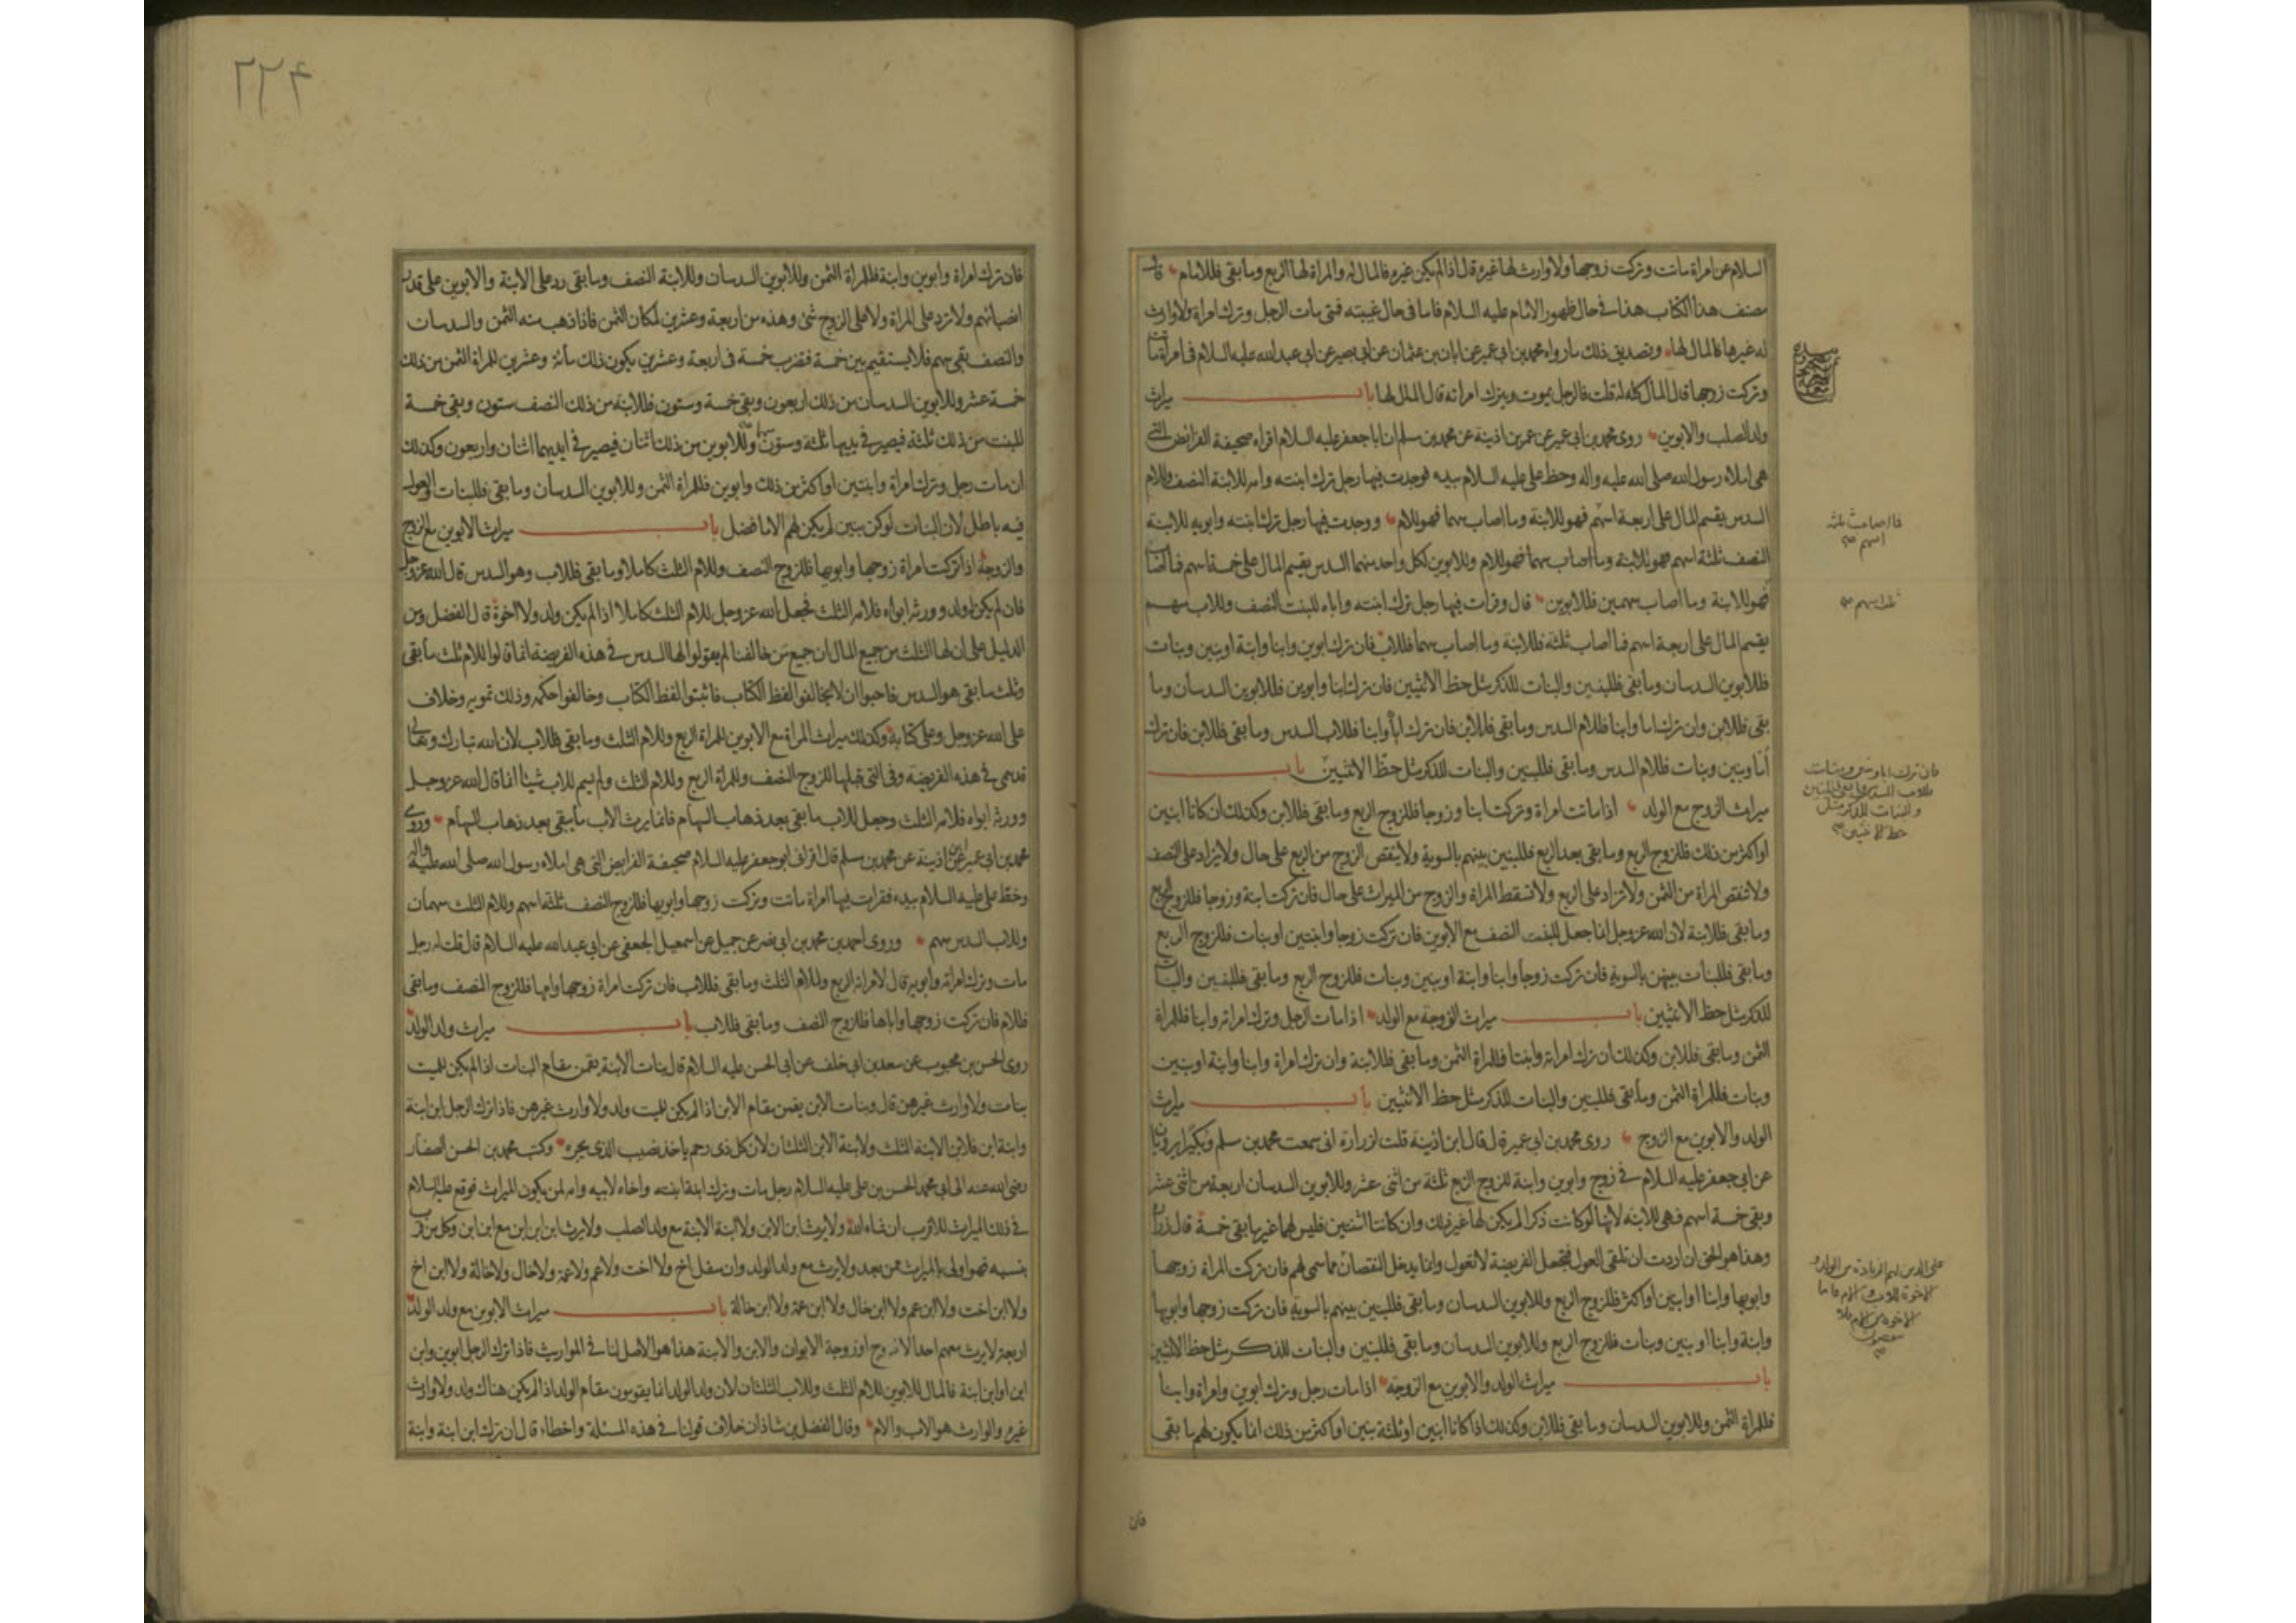 السلام عن امراة ماتت وتركت زوجها ولا وارث لها غيره قال اذا لم يكن غيره فالمال له والمراة لها الربع وما بقى فللامام قال
مصنف هذا الكتاب هذا فى حال ظهور الامام عليه السلام فاما فى حال غيبته فمتى مات الرجل وترك امراة ولا وارث
له غيرها فالمال لها وتصديق ذلك ما رواه محمد بن ابى عمير عن ابان بن عثمان عن ابى بصير عن ابى عبد الله عليه السلام فى امراة ماتت
وتركت زوجها قال المال كله له قلت فالرجل يموت ويترك امراته قال المال لها باب ميراث
ولد الصلب والابوين روى محمد بن ابى عمير عن عمر بن اذينة عن محمد بن مسلم ان ابا جعفر عليه السلام اقراه صحيفة الفرايض التى
هى املاء رسول الله صلى الله عليه واله وخط على عليه السلام بيده فوجدت فيها رجل ترك ابنته وامه للابنة النصف وللام
السدس يقسم المال على اربعة اسهم فهو للابنة وما اصاب سهما فهو للام ووجدت فيها رجل ترك ابنته وابويه للابنة
النصف ثلثة اسهم فهو للابنة وما اصاب سهما فهو للام وللابوين لكل واحد منهما السدس يقسم المال على خمسة اسهم فما اصاب
فهو للابنة وما اصاب سهمين فللابوين قال وقرات فيها رجل ترك ابنته واباه للبنت النصف وللاب سهم
يقسم المال على اربعة اسهم فما اصاب ثلثة فللابنة وما اصاب سهما فللاب فان ترك ابوين وابنا وابنة او بنين وبنات
فللابوين السدسان وما بقى فللبنين والبنات للذكر مثل حظ الانثيين فان ترك ابنا وابوين فللابوين السدسان وما
بقى فللابن وان ترك اما وابنا فللام السدس وما بقى فللابن فان ترك ابا وابنا فللاب السدس وما بقى فللابن فان ترك
اما وبنين وبنات فللام السدس وما بقى فللبنين والبنات للذكر مثل حظ الانثيين باب
ميراث الزوج مع الولد اذا ماتت امراة وتركت ابنا وزوجا فللزوج الربع وما بقى فللابن وكذلك ان كانا ابنين
او اكثر من ذلك فللزوج الربع وما بقى بعد الربع فللبنين بينهم بالسوية ولا ينقص الزوج من الربع على حال ولا يزاد على النصف
ولا تنقص المراة من الثمن ولا تزاد على الربع ولا تسقط المراة والزوج من الميراث على حال فان تركت ابنة وزوجا فللزوج الربع
وما بقى فللابنة لان الله عز وجل انما جعل للبنت النصف مع الابوين فان تركت زوجا وابنتين او بنات فللزوج الربع
وما بقى فللبنات بينهن بالسوية فان تركت زوجا وابنا وابنة او بنين وبنات فللزوج الربع وما بقى فللبنين والبنات
للذكر مثل حظ الانثيين باب ميراث الزوجة مع الولد اذا مات الرجل وترك امراته وابنا فللمراة
الثمن وما بقى فللابن وكذلك ان ترك امراته وابنتا فللمراة الثمن وما بقى فللابنة وان ترك امراة وابنا وابنة او بنين
وبنات فللمراة الثمن وما بقى فللبنين والبنات للذكر مثل حظ الانثيين باب ميراث
الولد والابوين مع الزوج روى محمد بن ابى عمير قال قال ابن اذينة قلت لزرارة انى سمعت محمد بن مسلم وبكيرا يرويان
عن ابى جعفر عليه السلام فى زوج وابوين وابنة للزوج الربع ثلثة من اثنى عشر وللابوين السدسان اربعة من اثنى عشر
وبقى خمسة اسهم فهى للابنة لانها لو كانت ذكرا لم يكن لها غير ذلك وان كانتا اثنتين فليس لهما غير ما بقى خمسة قال زرارة
وهذا هو الحق ان اردت ان تلقى العول فتجعل الفريضة لا تعول وانما يدخل النقصان مما سمى لهم فان تركت المراة زوجها
وابويها وابنا او ابنين او اكثر فللزوج الربع وللابوين السدسان وما بقى فللبنين بينهم بالسوية فان تركت زوجها وابويها
وابنة وابنا او بنين وبنات فللزوج الربع وللابوين السدسان وما بقى فللبنين والبنات للذكر مثل حظ الانثيين
باب ميراث الولد والابوين مع الزوجة اذا مات رجل وترك ابوين وامراة وابنا
فللمراة الثمن وللابوين السدسان وما بقى فللابن وكذلك اذا كانا ابنين او ثلثة بنين او اكثر من ذلك انما يكون لهم ما بقى
فان
فما اصاب ثلثة
اسهم
ثلثة اسهم
فان ترك ابا وبنين وبنات
فللاب السدس وما بقى فللبنين
والبنات للذكر مثل
حظ الانثيين
على الذين لهم الزيادة من الولد و
الاخوة للاب والام فاما
الاخوة من الام فلا
ينقصون
٢٢٤
فان ترك امراة وابوين وابنة فللمراة الثمن وللابوين السدسان وللابنة النصف وما بقى رد على الابنة والابوين على قدر
انصبائهم ولا ترد على المراة ولا على الزوج شئ وهذه من اربعة وعشرين لمكان الثمن فاذا ذهب منه الثمن والسدسان
والنصف بقى سهم فلا يستقيم بين خمسة فتضرب خمسة فى اربعة وعشرين يكون ذلك مائة وعشرين للمراة الثمن من ذلك
خمسة عشر وللابوين السدسان من ذلك اربعون وبقى خمسة وستون فللابنة من ذلك النصف ستون وبقى خمسة
للبنت من ذلك ثلثة فيصير فى يديها ثلثة وستون وللابوين من ذلك اثنان فيصير فى ايديهما اثنان واربعون وكذلك
ان مات رجل وترك امراة وابنتين او اكثر من ذلك وابوين فللمراة الثمن وللابوين السدسان وما بقى فللبنات والعول
فيه باطل لان البنات لو كن بنين لم يكن لهم الا ما فضل باب ميراث الابوين مع الزوج
والزوجة اذا تركت امراة زوجها وابويها فللزوج النصف وللام الثلث كاملا وما بقى فللاب وهو السدس قال الله عز وجل
فان لم يكن له ولد وورثه ابواه فلامه الثلث فجعل الله عز وجل للام الثلث كاملا اذا لم يكن ولد ولا اخوة قال الفضل ومن
الدليل على ان لها الثلث من جميع المال ان جميع من خالفنا لم يقولوا لها السدس فى هذه الفريضة انما قالوا للام ثلث ما بقى
وثلث ما بقى هو السدس فاحبوا ان لا يخالفوا لفظ الكتاب فاثبتوا لفظ الكتاب وخالفوا حكمه وذلك تمويه وخلاف
على الله عز وجل وعلى كتابه وكذلك ميراث المراة مع الابوين للمراة الربع وللام الثلث وما بقى فللاب لان الله تبارك وتعالى
قد سمى فى هذه الفريضة وفى التى قبلها للزوج النصف وللمراة الربع وللام الثلث ولم يسم للاب شيئا انما قال الله عز وجل
وورثه ابواه فلامه الثلث وجعل للاب ما بقى بعد ذهاب السهام فانما يرث الاب ما يبقى بعد ذهاب السهام وروى
محمد بن ابى عمير عن ابن اذينة عن محمد بن مسلم قال اقرانى ابو جعفر عليه السلام صحيفة الفرايض التى هى املاء رسول الله صلى الله عليه واله
وخط على عليه السلام بيده فقرات فيها امراة ماتت وتركت زوجها وابويها فللزوج النصف ثلثة اسهم وللام الثلث سهمان
وللاب السدس سهم وروى احمد بن محمد بن ابى نصر عن جميل عن اسمعيل الجعفى عن ابى عبد الله عليه السلام قال قلت له رجل
مات وترك امراته وابويه قال لامراته الربع وللام الثلث وما بقى فللاب فان تركت امراة زوجها وامها فللزوج النصف وما بقى
فللام فان تركت زوجها واباها فللزوج النصف وما بقى فللاب باب ميراث ولد الولد
روى الحسن بن محبوب عن سعد بن ابى خلف عن ابى الحسن عليه السلام قال بنات الابنة يقمن مقام البنات اذا لم يكن للميت
بنات ولا وارث غيرهن قال وبنات الابن يقمن مقام الابن اذا لم يكن للميت ولد ولا وارث غيرهن فاذا ترك الرجل ابن ابنة
وابنة ابن فلابن الابنة الثلث ولابنة الابن الثلثان لان كل ذى رحم ياخذ نصيب الذى يجره وكتب محمد بن الحسن الصفار
رضى الله عنه الى ابى محمد الحسن بن على عليه السلام رجل مات وترك ابنة ابنته واخاه لابيه وامه لمن يكون الميراث فوقع عليه السلام
فى ذلك الميراث للاقرب ان شاء الله ولا يرث ابن الابن ولا ابنة الابنة مع ولد الصلب ولا يرث ابن ابن ابن مع ابن ابن وكل من قرب
بنسبه فهو اولى بالميراث ممن بعد ولا يرث مع ولد الولد وان سفل اخ ولا اخت ولا عم ولا عمة ولا خال ولا خالة ولا ابن اخ
ولا ابن اخت ولا ابن عم ولا ابن خال ولا ابن عمة ولا ابن خالة باب ميراث الابوين مع ولد الولد
اربعة لا يرث معهم احد الا زوج او زوجة الابوان والابن والابنة هذا هو الاصل لنا فى المواريث فاذا ترك الرجل ابوين وابن
ابن او ابن ابنة فالمال للابوين للام الثلث وللاب الثلثان لان ولد الولد انما يقومون مقام الولد اذا لم يكن هناك ولد ولا وارث
غيره والوارث هو الاب والام وقال الفضل بن شاذان خلاف قولنا فى هذه المسئلة واخطاء قال ان ترك ابن ابنة وابنة